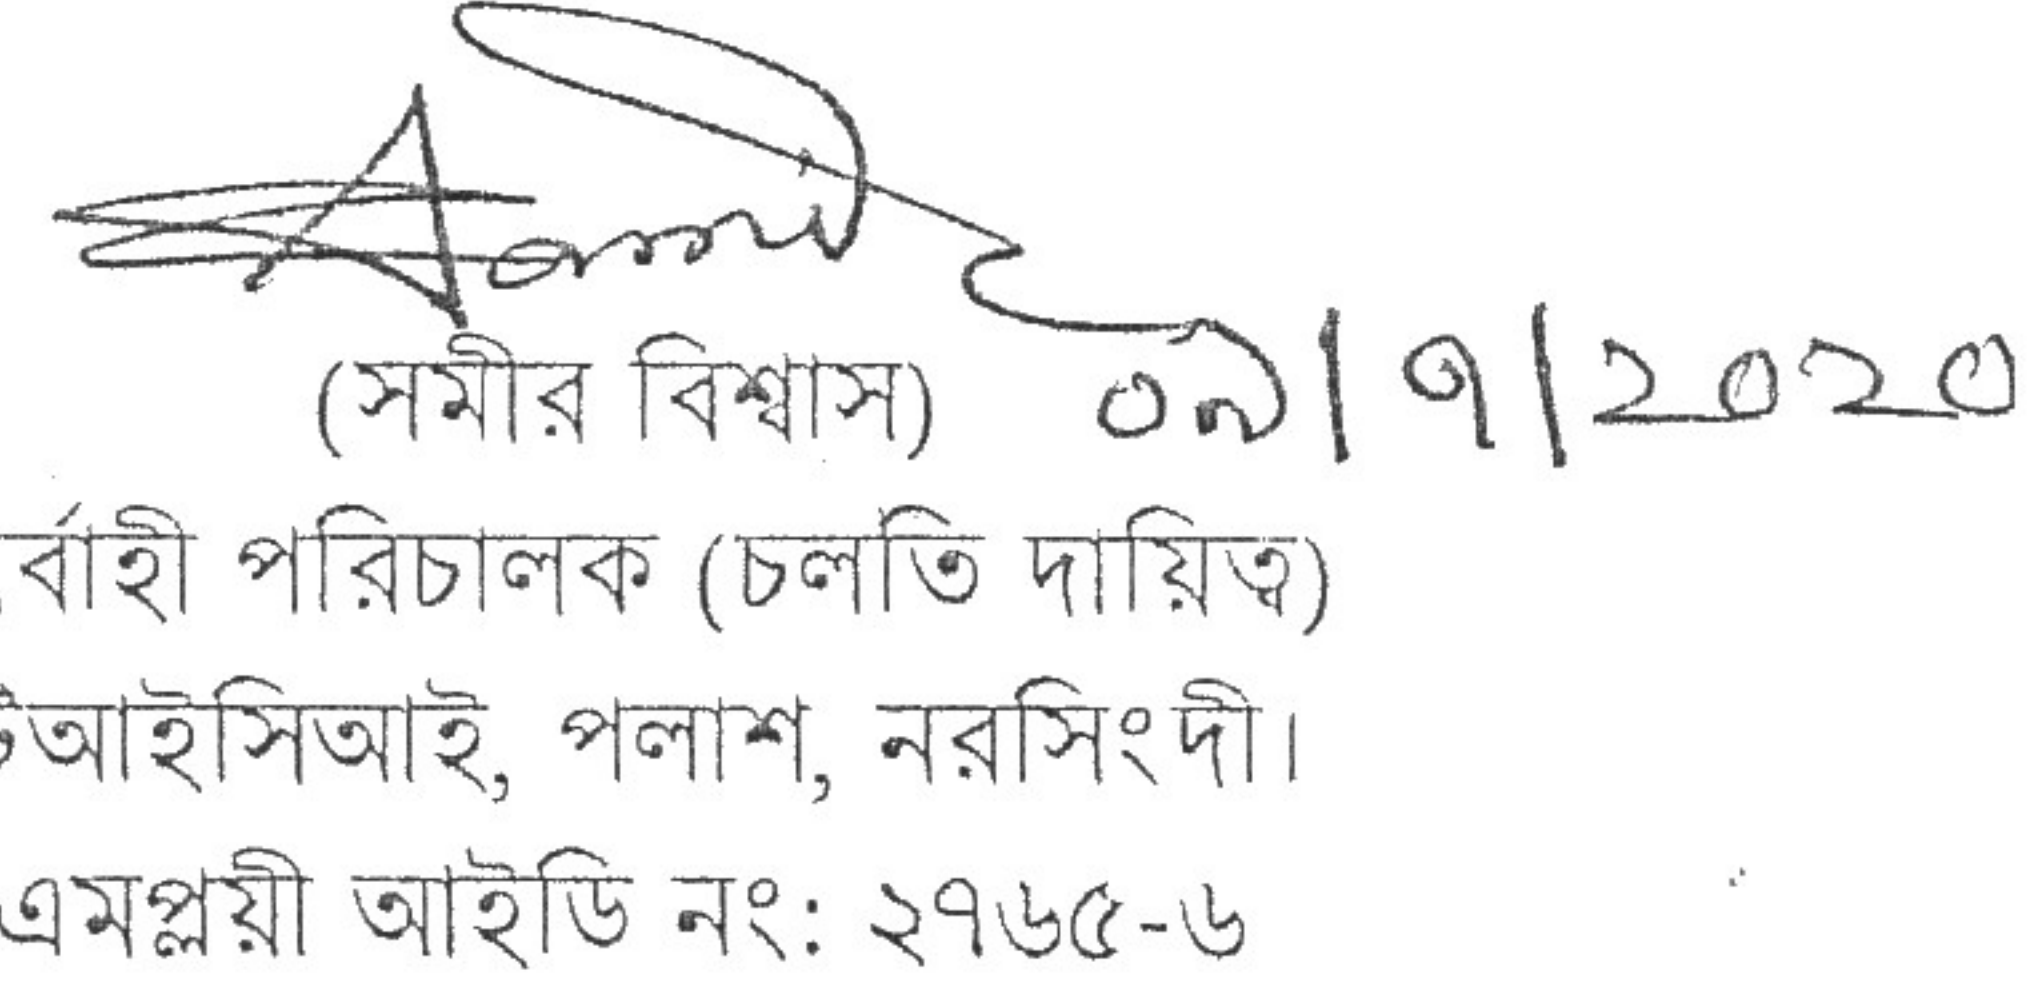 (সমীর বিশ্বাস) ০৯/৭/২০২০
র্বাহী পরিচালক (চলতি দায়িত্ব)
টিআইসিআই, পলাশ, নরসিংদী।
এমপ্লয়ী আইডি নং: ২৭৬৫-৬